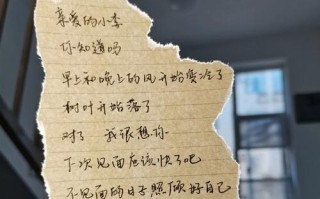 亲爱的小李
你知道吗
早上和晚上的风开始变冷了
树叶开始落了
对了 我很想你
下次见面应该快了吧
不见面的日子照顾好自己